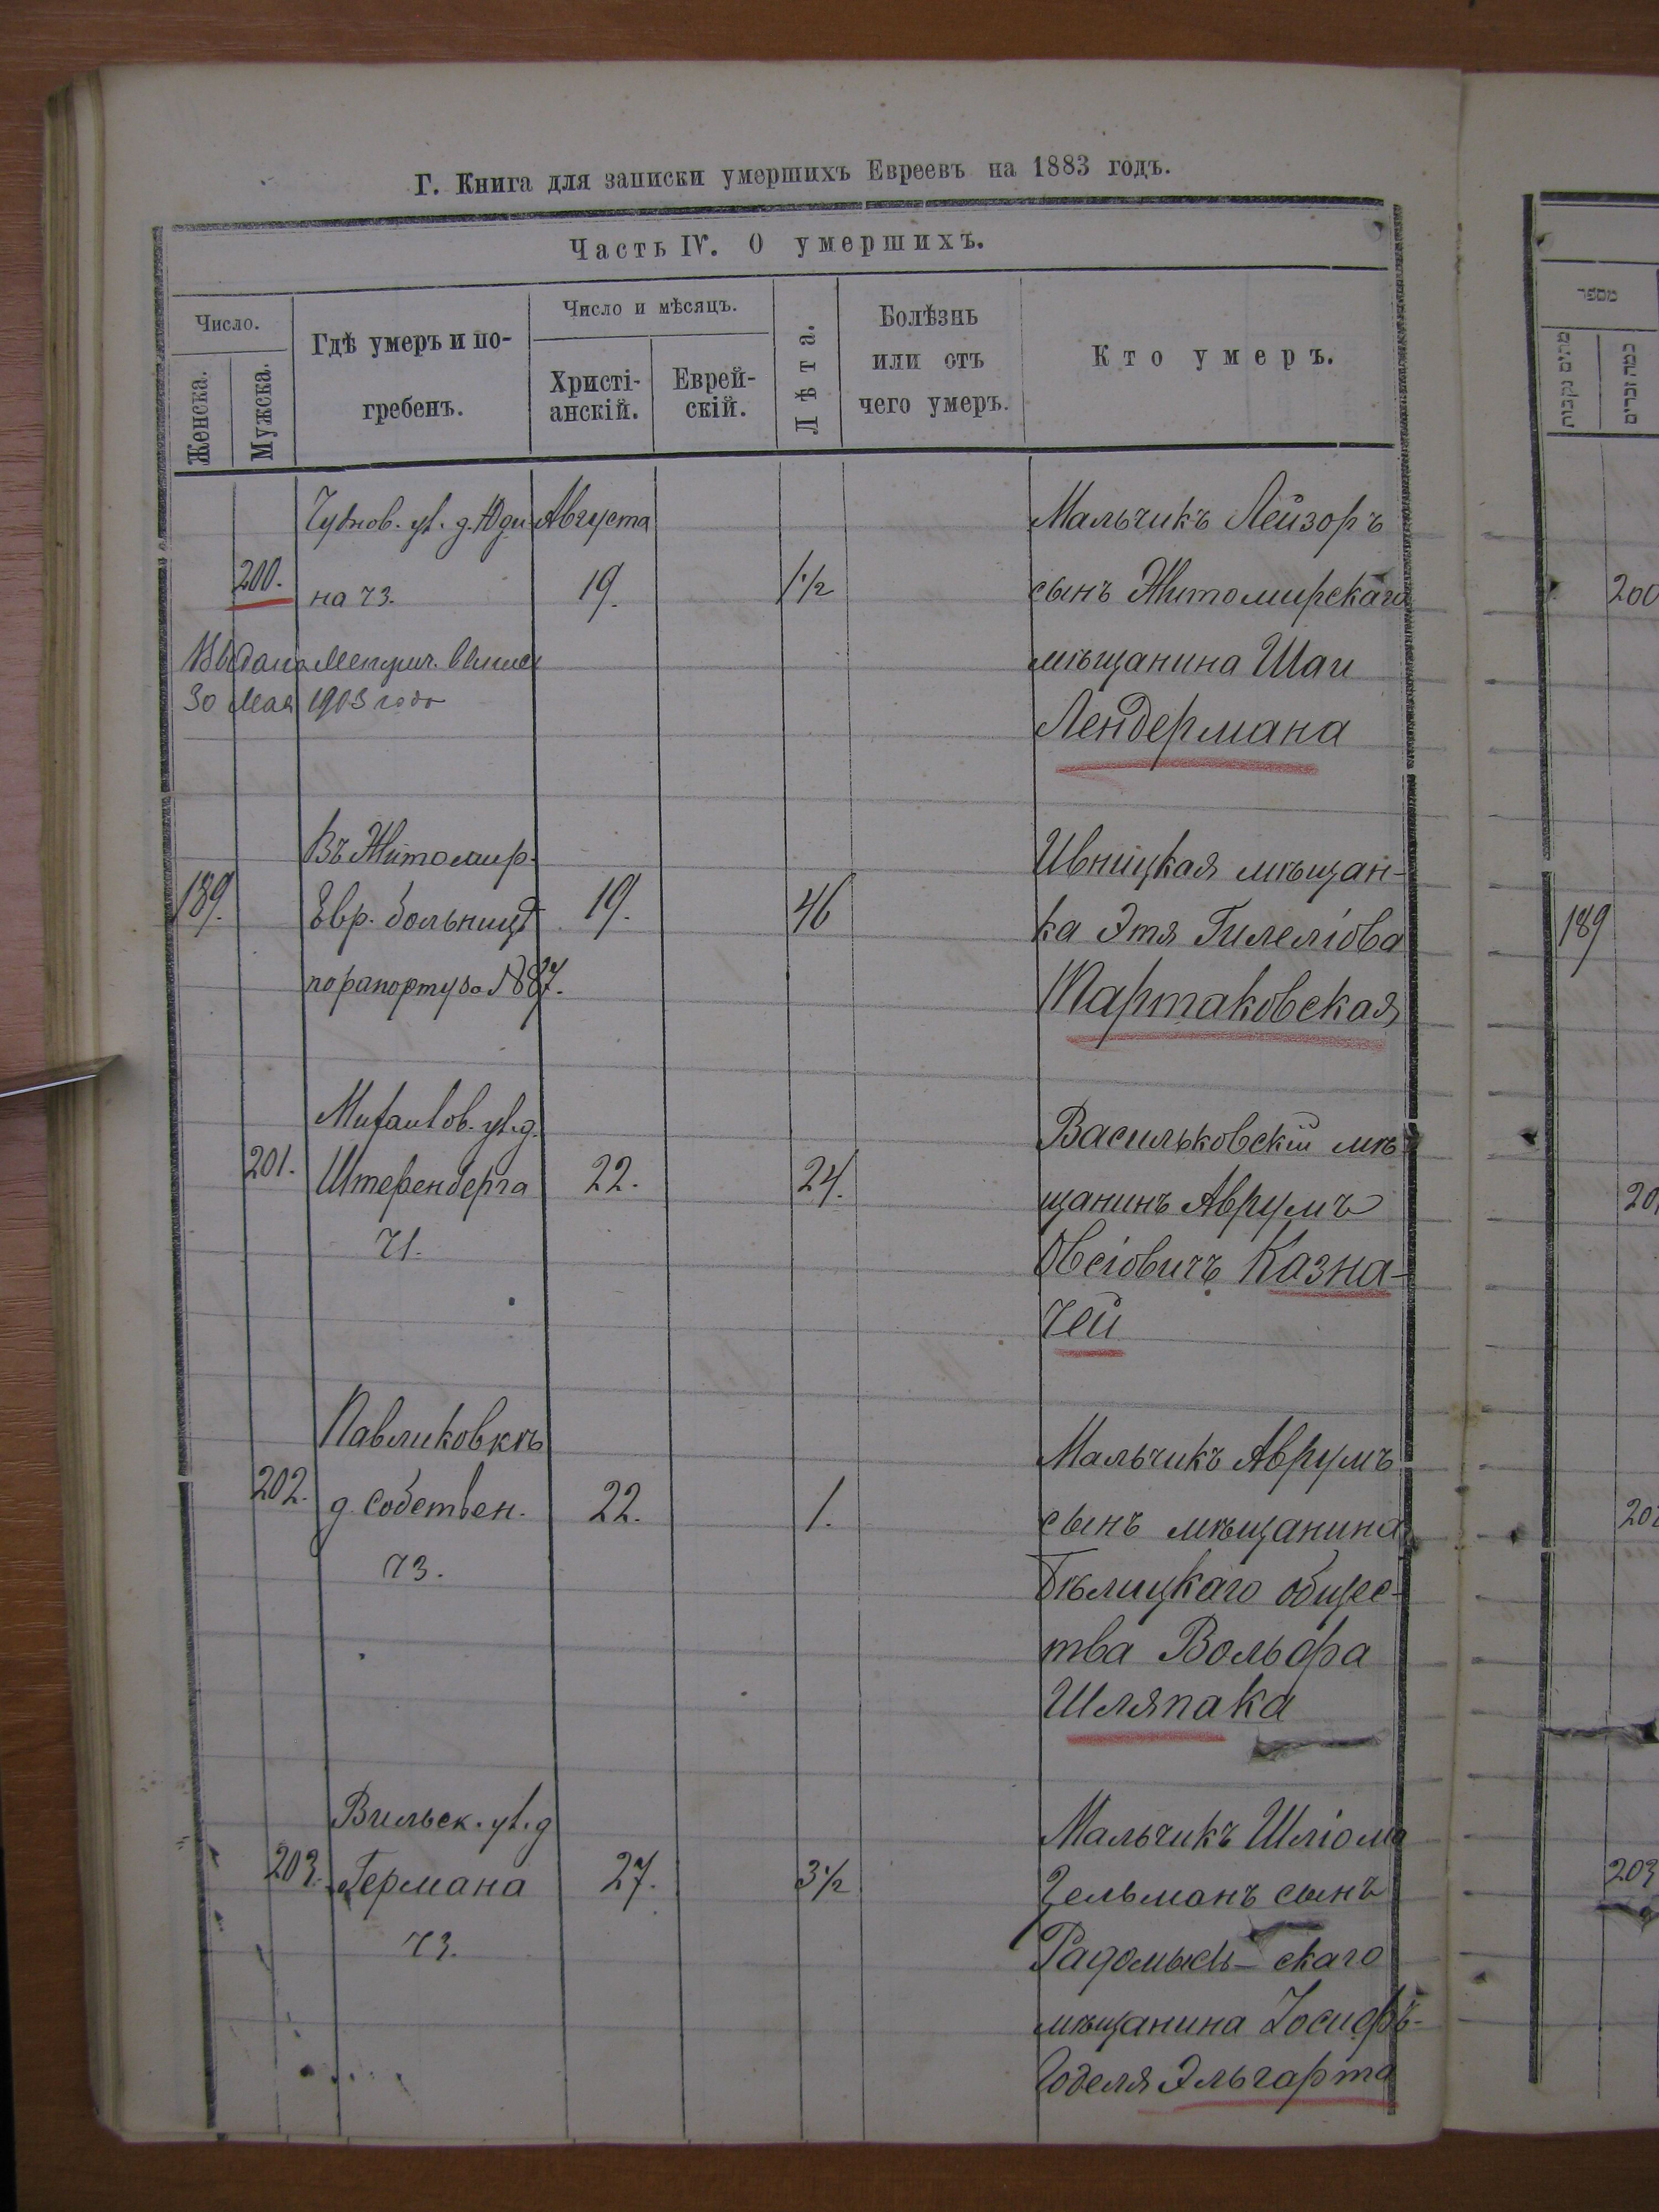 Г. Книга для записки умершихъ Евреевъ на 1883 годъ.
Часть IV. О умершихъ.
Число.
Женска.
Мужска.
Гдѣ умеръ и по-
гребенъ.
Число и мѣсяцъ.
Христі-
анскій.
Еврей-
скій.
Лѣта.
Болѣзнь
или отъ
чего умеръ.
Кто умеръ.
מספר
כמה זכרים
Чуднов. ул. д. Юди-
на 73.
200.
Августа
19.
1 1/2
Мальчикъ Лейзоръ
сынъ Житомирскаго
мѣщанина Шаи
Лендермана
Выдана
30 Мая 1903 года
Въ Житомир.
189.
Евр. больницѣ
по рапорту за № 87.
19.
46
Ивницкая мѣщан-
ка Этя Гилеліова
Мартаковская
Михайлов. ул. д.
201.
Штеренберга
71.
22.
24.
Васильковскій мѣ-
щанинъ Аврумъ
Овсіовичъ Казна-
чей
Павликовкѣ
202.
д. собствен.
73.
22.
1.
Мальчикъ Аврумъ
сынъ мѣщанина
Бѣлицкаго общес-
тва Вольфа
Шляпака
Вильск. ул. д
203.
Германа
73.
27.
3 1/2
Мальчикъ Шліома
Зельманъ сынъ
Радомысль-скаго
мѣщанина Іосифъ-
Годеля Эльгарта
200
189
203